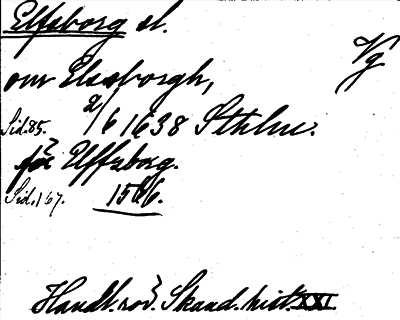 Elfsborg sl.
Vg
om Elssborgh,
Sid. 85. 2/6 1638 Sthlm.
för Elffzborg.
Sid. 167. 1566.
Handl. rör. Skand. hist. XXI